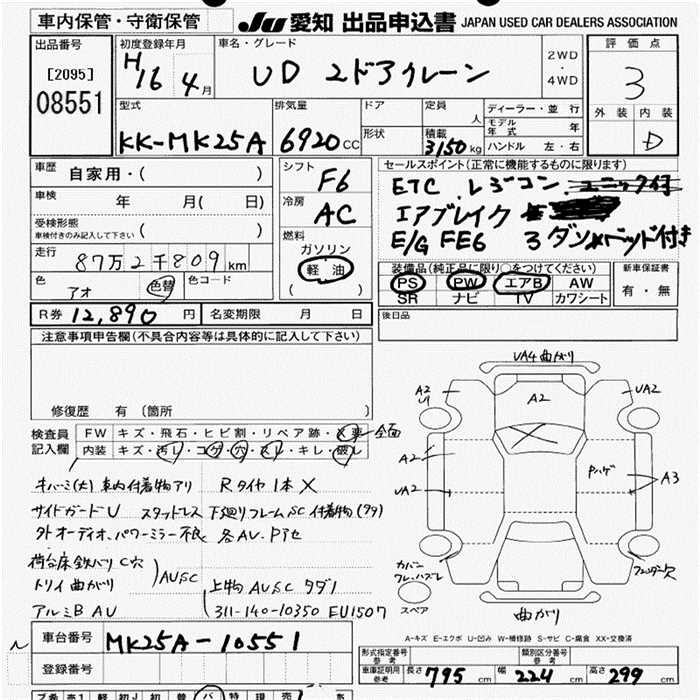 車内保管・守衛保管
JU 愛知 出品申込書 JAPAN USED CAR DEALERS ASSOCIATION
出品番号
[2095]
08551
初度登録年月
H16 4月
車名・グレード
UD 2ドアクレーン
2WD
・
4WD
評価点
3
外装 内装
D
型式
KK-MK25A
排気量
6920CC
ドア
形状
定員
人
積載
3150kg
ディーラー・並行
モデル年式 年
ハンドル 左・右
車歴
自家用・( )
車検
年 月( 日)
受検形態
車検付きのみ記入して下さい
( )
走行
87万2千809km
色
アオ
色替
色コード
シフト
F6
冷房
AC
燃料
ガソリン
軽油
( )
セールスポイント(正常に機能するものに限ります)
ETC ラジコン
エアブレイク
E/G FE6 3ダンベッド付き
装備品(純正品に限り○をつけてください)
PS PW エアB AW
SR ナビ TV カワシート
新車保証書
有・無
R券 12,890円
名変期限 月 日
後日品
注意事項申告欄(不具合内容等は具体的に記入して下さい)
修復歴 有(箇所 )
検査員
記入欄
FW キズ・飛石・ヒビ割・リペア跡・X要 全面
内装 キズ・汚レ・コゲ・穴・スレ・キレ・破レ
車内付着物アリ Rタイヤ1本X
サイドガードU スタッドレス 下廻りフレームSC 付着物(タタ)
外オーディオ、パワーミラー不良 各AU、Pアセ
荷台床鉄バリ C穴
トリイ曲がり
AUSC
アルミB AU
上物 AUSC タダノ
311-140-10350 EU1507
VA4曲がり
A2
U1
A2
UA2
A2
UA2
A3
カバー
ワレ、ハズレ
フェンダー欠
スペア
曲がり
A-キズ E-エクボ U-凹み W-補修跡 S-サビ C-腐食 XX-交換済
車台番号
MK25A-10551
登録番号
形式指定番号
参考
類別区分番号
参考
車庫証明用
参考
長さ 795cm 幅 224cm 高さ 299cm